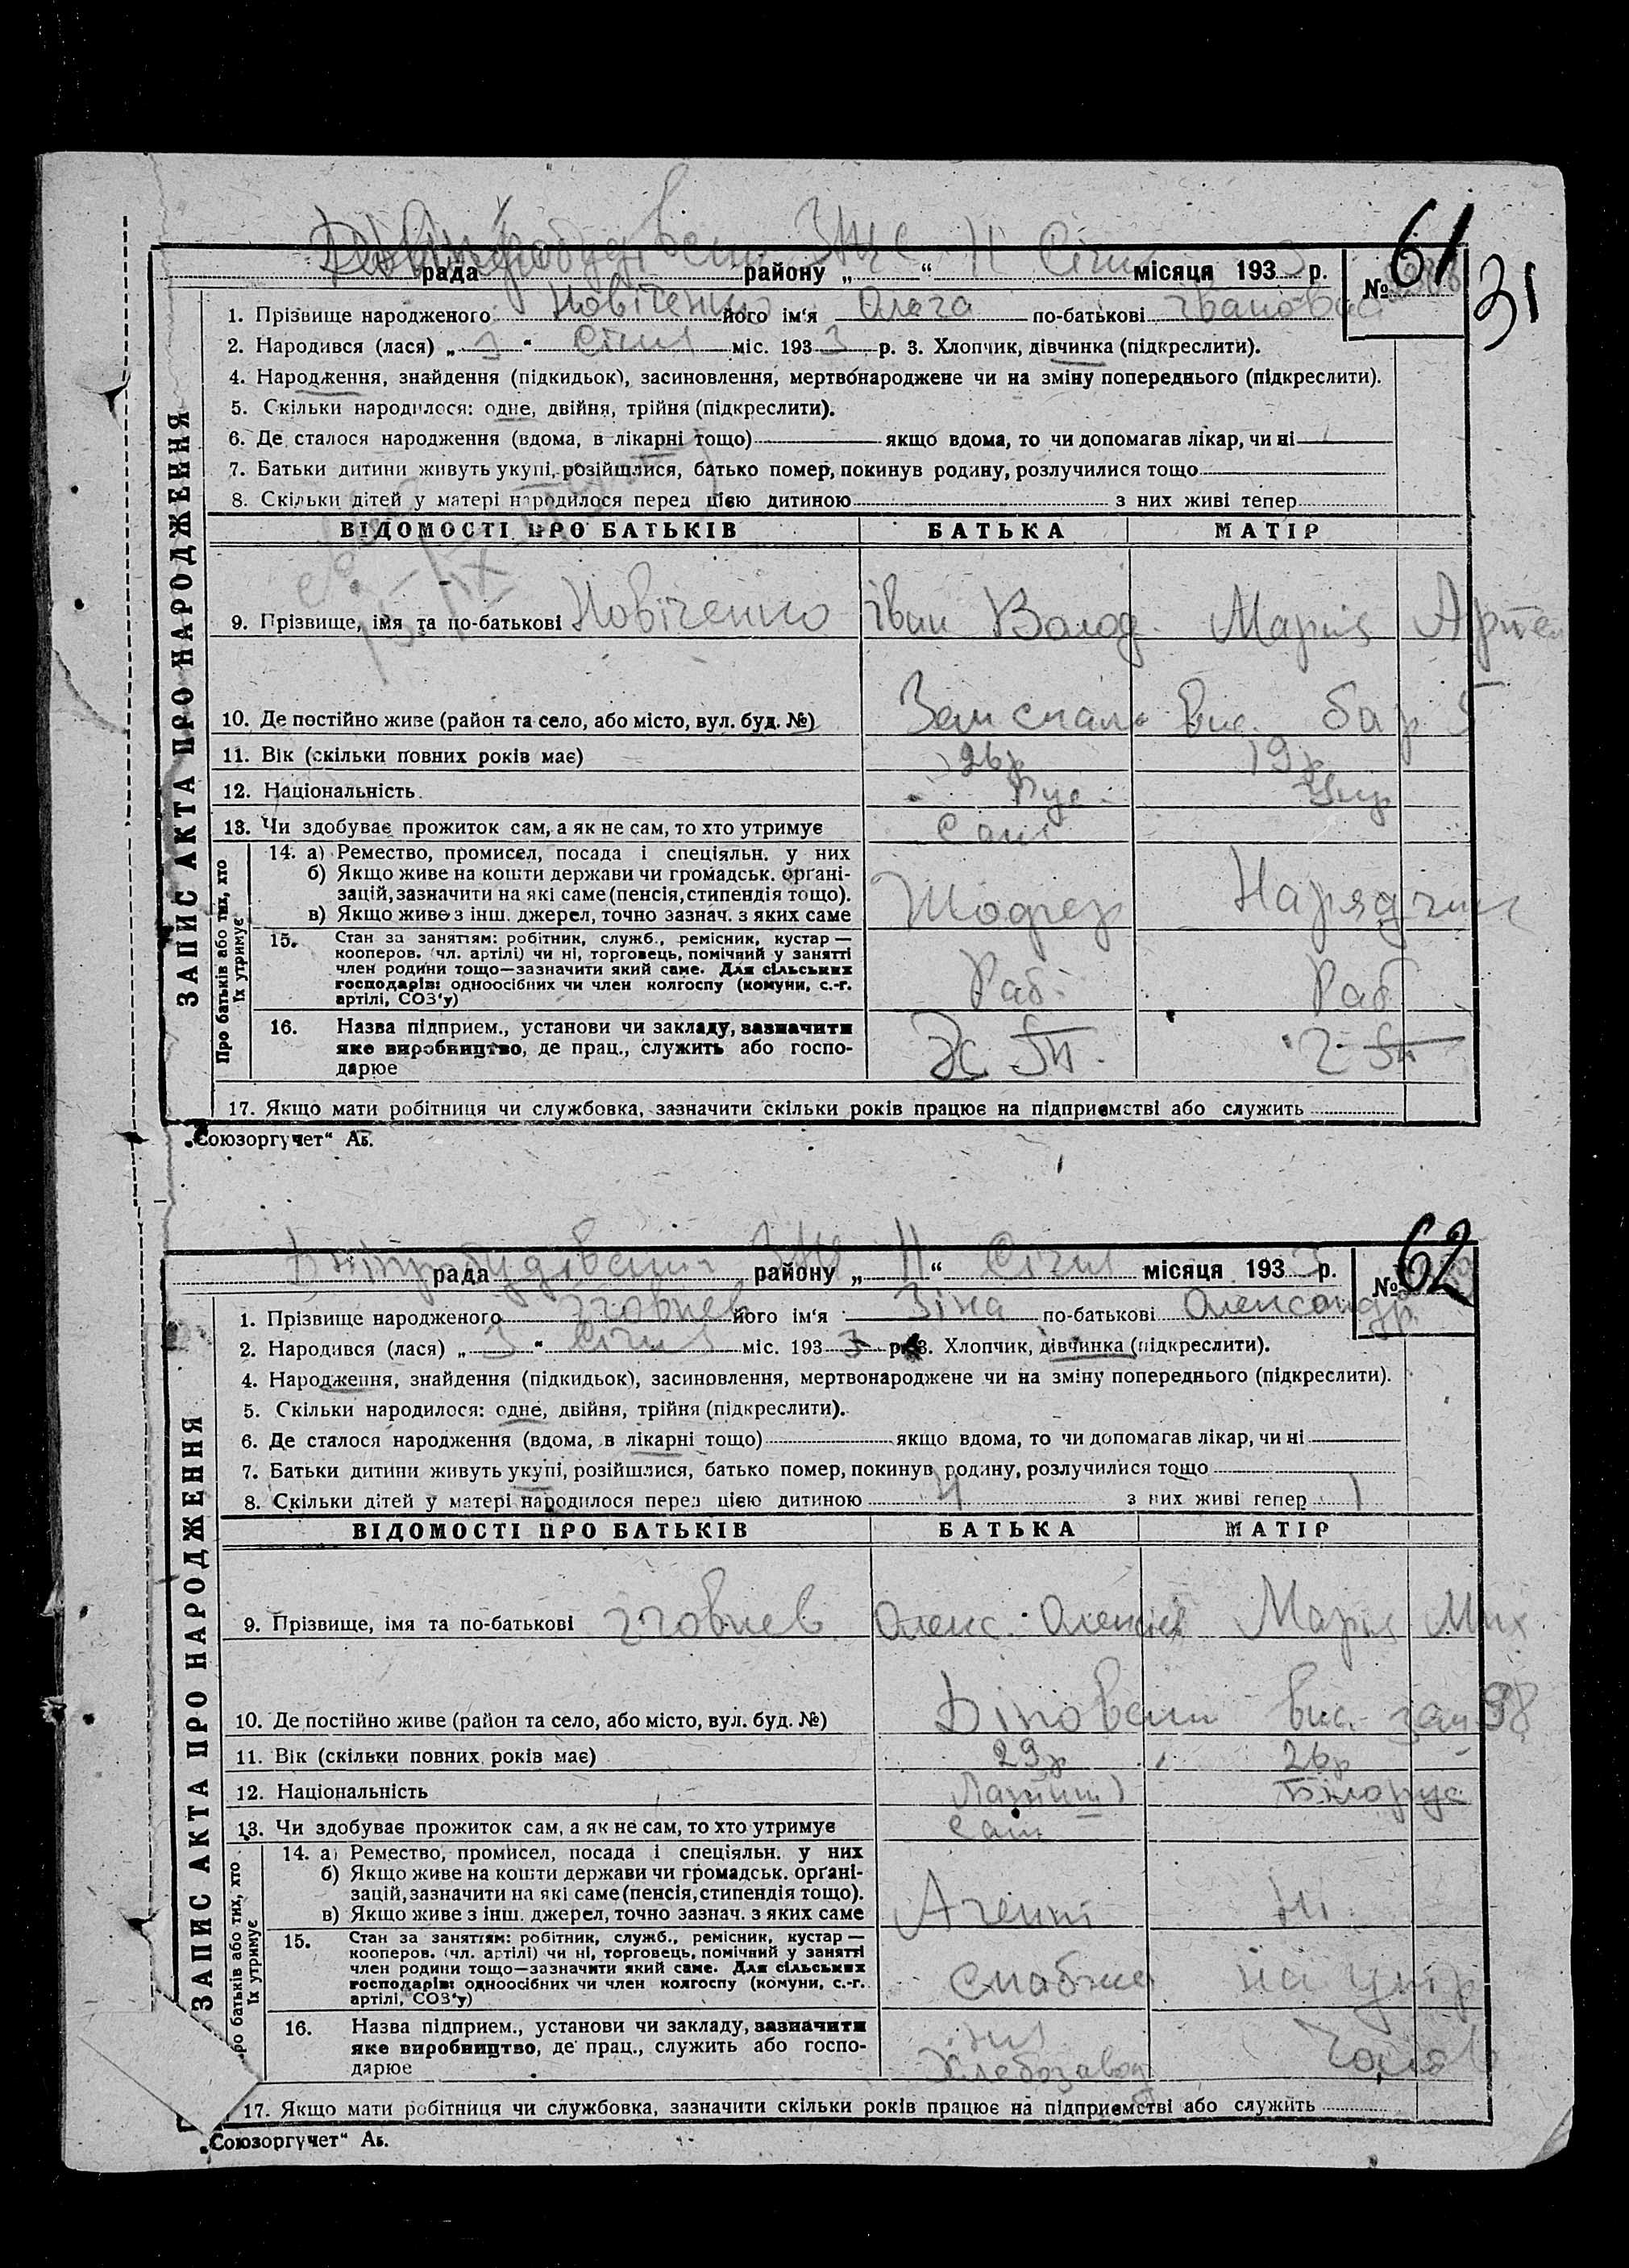 61
31
рада району „ “ 11 Січня місяця 1933 р. №
1. Прізвище народженого Новіченко його ім'я Ольга по-батькові Івановна
2. Народився (лася) „3“ Січня міс. 1933 р. 3. Хлопчик, дівчинка (підкреслити).
4. Народження, знайдення (підкидьок), засиновлення, мертвонароджене чи на зміну попереднього (підкреслити).
5. Скільки народилося: одне, двійня, трійня (підкреслити).
6. Де сталося народження (вдома, в лікарні тощо) якщо вдома, то чи допомагав лікар, чи ні
7. Батьки дитини живуть укупі, розійшлися, батько помер, покинув родину, розлучилися тощо
8. Скільки дітей у матері народилося перед цією дитиною з них живі тепер
ЗАПИС АКТА ПРО НАРОДЖЕННЯ
ВІДОМОСТІ ПРО БАТЬКІВ БАТЬКА МАТІР
9. Прізвище, імя та по-батькові Новіченко Іван Волод. Марія Артем
10. Де постійно живе (район та село, або місто, вул. буд. №) вис. бар 5
11. Вік (скільки повних років має) 26р 19р
12. Національність Рус. Укр
13. Чи здобуває прожиток сам, а як не сам, то хто утримує Самі
Про батьків або тих, хто їх утримує
14. а) Ремество, промисел, посада і спеціяльн. у них
б) Якщо живе на кошти держави чи громадськ. органі-
зацій, зазначити на які саме (пенсія, стипендія тощо).
в) Якщо живе з інш. джерел, точно зазнач. з яких саме Шофер Нарядчик
15. Стан за заняттям: робітник, служб., ремісник, кустар —
кооперов. (чл. артілі) чи ні, торговець, помічний у занятті
член родини тощо—зазначити який саме. Для сільських
господарів: одноосібних чи член колгоспу (комуни, с.-г.
артілі, СОЗ'у) Раб. Раб
16. Назва підприєм., установи чи закладу, зазначити
яке виробництво, де прац., служить або госпо-
дарює
17. Якщо мати робітниця чи службовка, зазначити скільки років працює на підприємстві або служить
„Союзоргучет“ Аб.
62
Дніпробудівська рада району „ 11 “ Січня місяця 1933 р. №
1. Прізвище народженого його ім'я Зіна по-батькові Олександр.
2. Народився (лася) „3“ Січня міс. 1933 р. 3. Хлопчик, дівчинка (підкреслити).
4. Народження, знайдення (підкидьок), засиновлення, мертвонароджене чи на зміну попереднього (підкреслити).
5. Скільки народилося: одне, двійня, трійня (підкреслити).
6. Де сталося народження (вдома, в лікарні тощо) якщо вдома, то чи допомагав лікар, чи ні
7. Батьки дитини живуть укупі, розійшлися, батько помер, покинув родину, розлучилися тощо
8. Скільки дітей у матері народилося перед цією дитиною з них живі тепер 1
ЗАПИС АКТА ПРО НАРОДЖЕННЯ
ВІДОМОСТІ ПРО БАТЬКІВ БАТЬКА МАТІР
9. Прізвище, імя та по-батькові Олекс. Марія Мих
10. Де постійно живе (район та село, або місто, вул. буд. №) вис. 98
11. Вік (скільки повних років має) 29р 26р
12. Національність Латиш Білорус
13. Чи здобуває прожиток сам, а як не сам, то хто утримує Сам
Про батьків або тих, хто їх утримує
14. а) Ремество, промисел, посада і спеціяльн. у них
б) Якщо живе на кошти держави чи громадськ. органі-
зацій, зазначити на які саме (пенсія, стипендія тощо).
в) Якщо живе з інш. джерел, точно зазнач. з яких саме Агент Ні.
15. Стан за заняттям: робітник, служб., ремісник, кустар —
кооперов. (чл. артілі) чи ні, торговець, помічний у занятті
член родини тощо—зазначити який саме. Для сільських
господарів: одноосібних чи член колгоспу (комуни, с.-г.
артілі, СОЗ'у) на утр
16. Назва підприєм., установи чи закладу, зазначити
яке виробництво, де прац., служить або госпо-
дарює Хлебозавод
17. Якщо мати робітниця чи службовка, зазначити скільки років працює на підприємстві або служить
„Союзоргучет“ Аб.